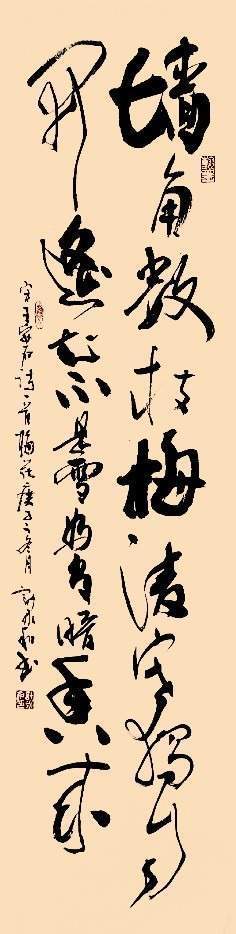 墙角数枝梅凌寒獨自
開遥知不是雪為有暗香来
宋王安石诗一首梅花庚子之冬月